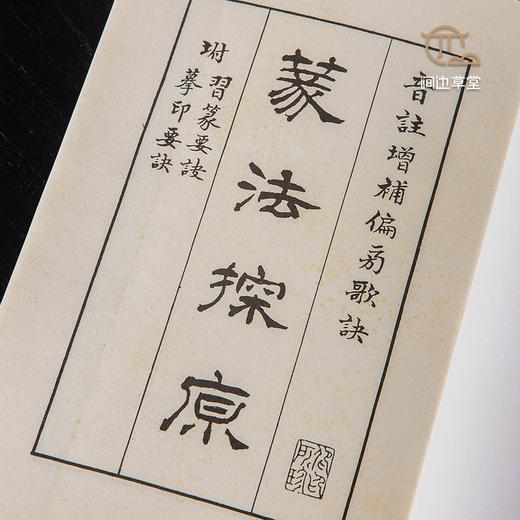 音註增補偏旁歌訣
篆法探原
坿習篆要訣
摹印要訣
间边草堂